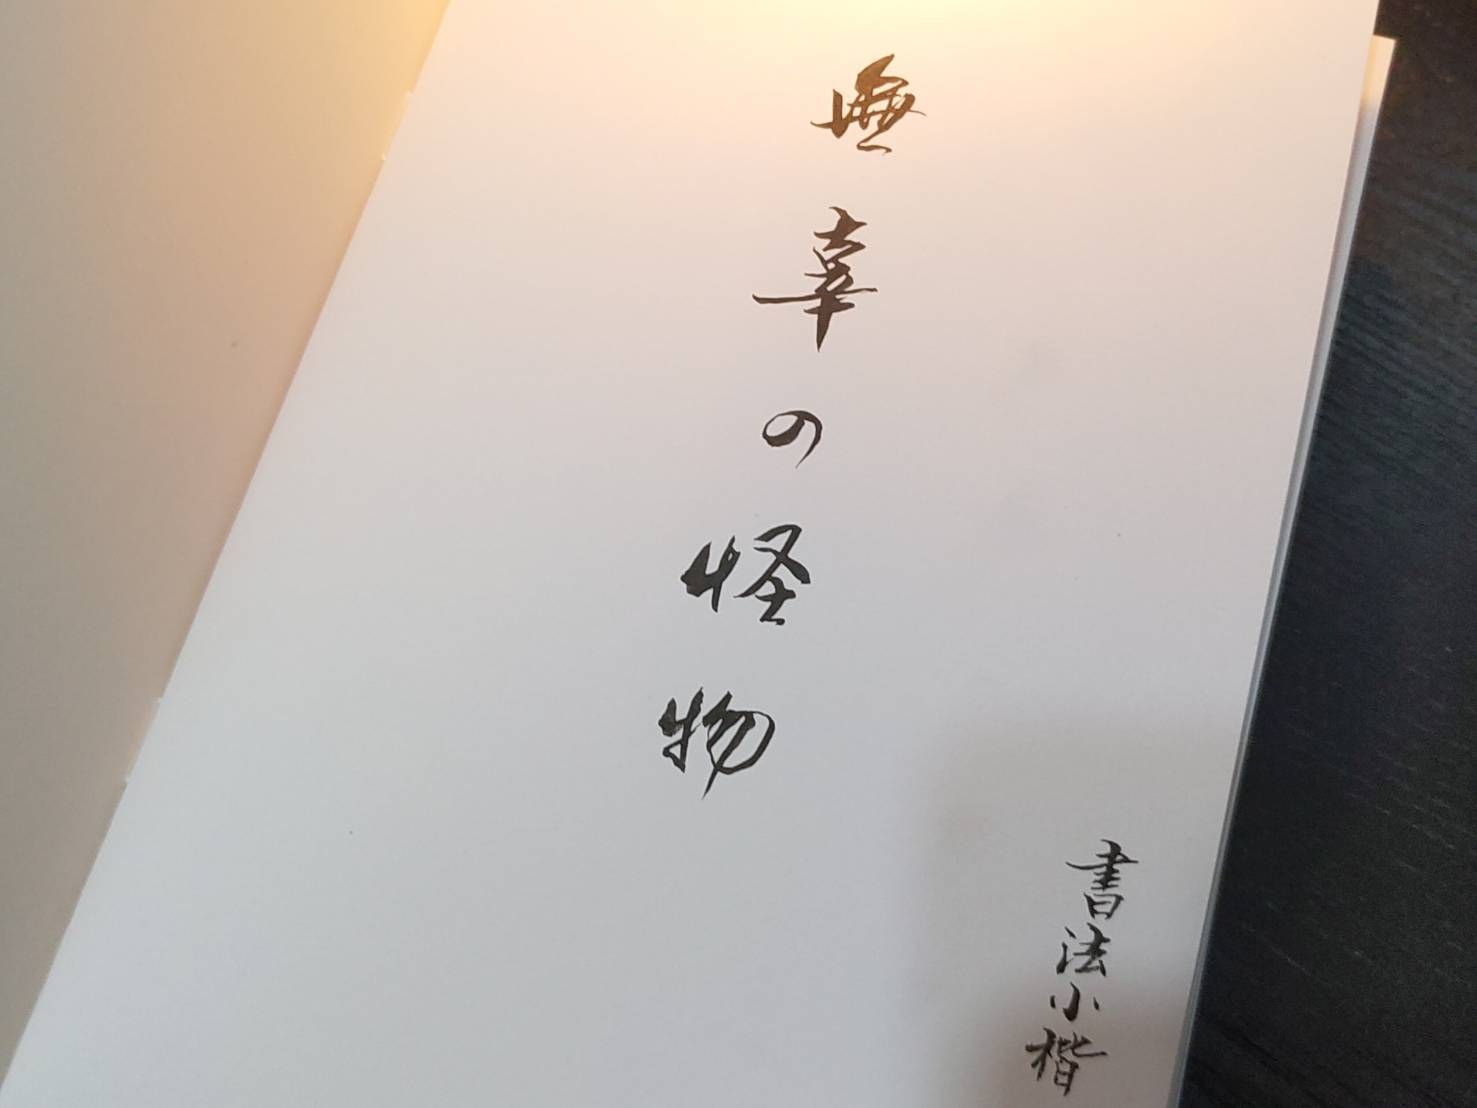 無辜の怪物
書法小楷